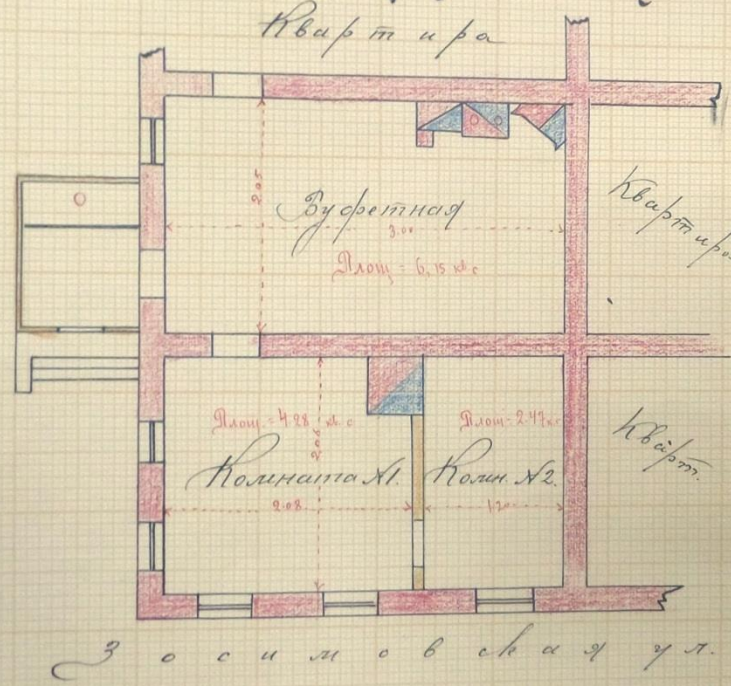 Квартира
Буфетная
2.05
3.00
Площ = 6,15 кв с
Квартира
Площ = 4.28 кв с
Площ = 2.47 к с
Комната №1.
Комн. №2.
Кварт.
2.08
1.20
Зосимовская ул.